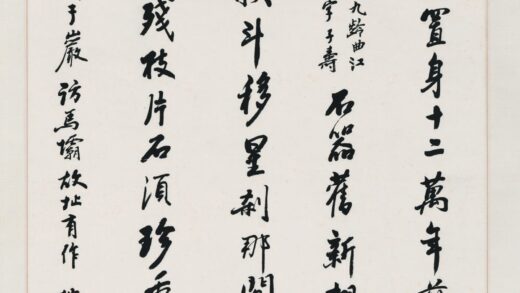 置身十二萬年前
九齡曲江
字子壽
石器舊新
斗移星刹那間
殘枝片石須珍重
于巖訪馬壩故址有作